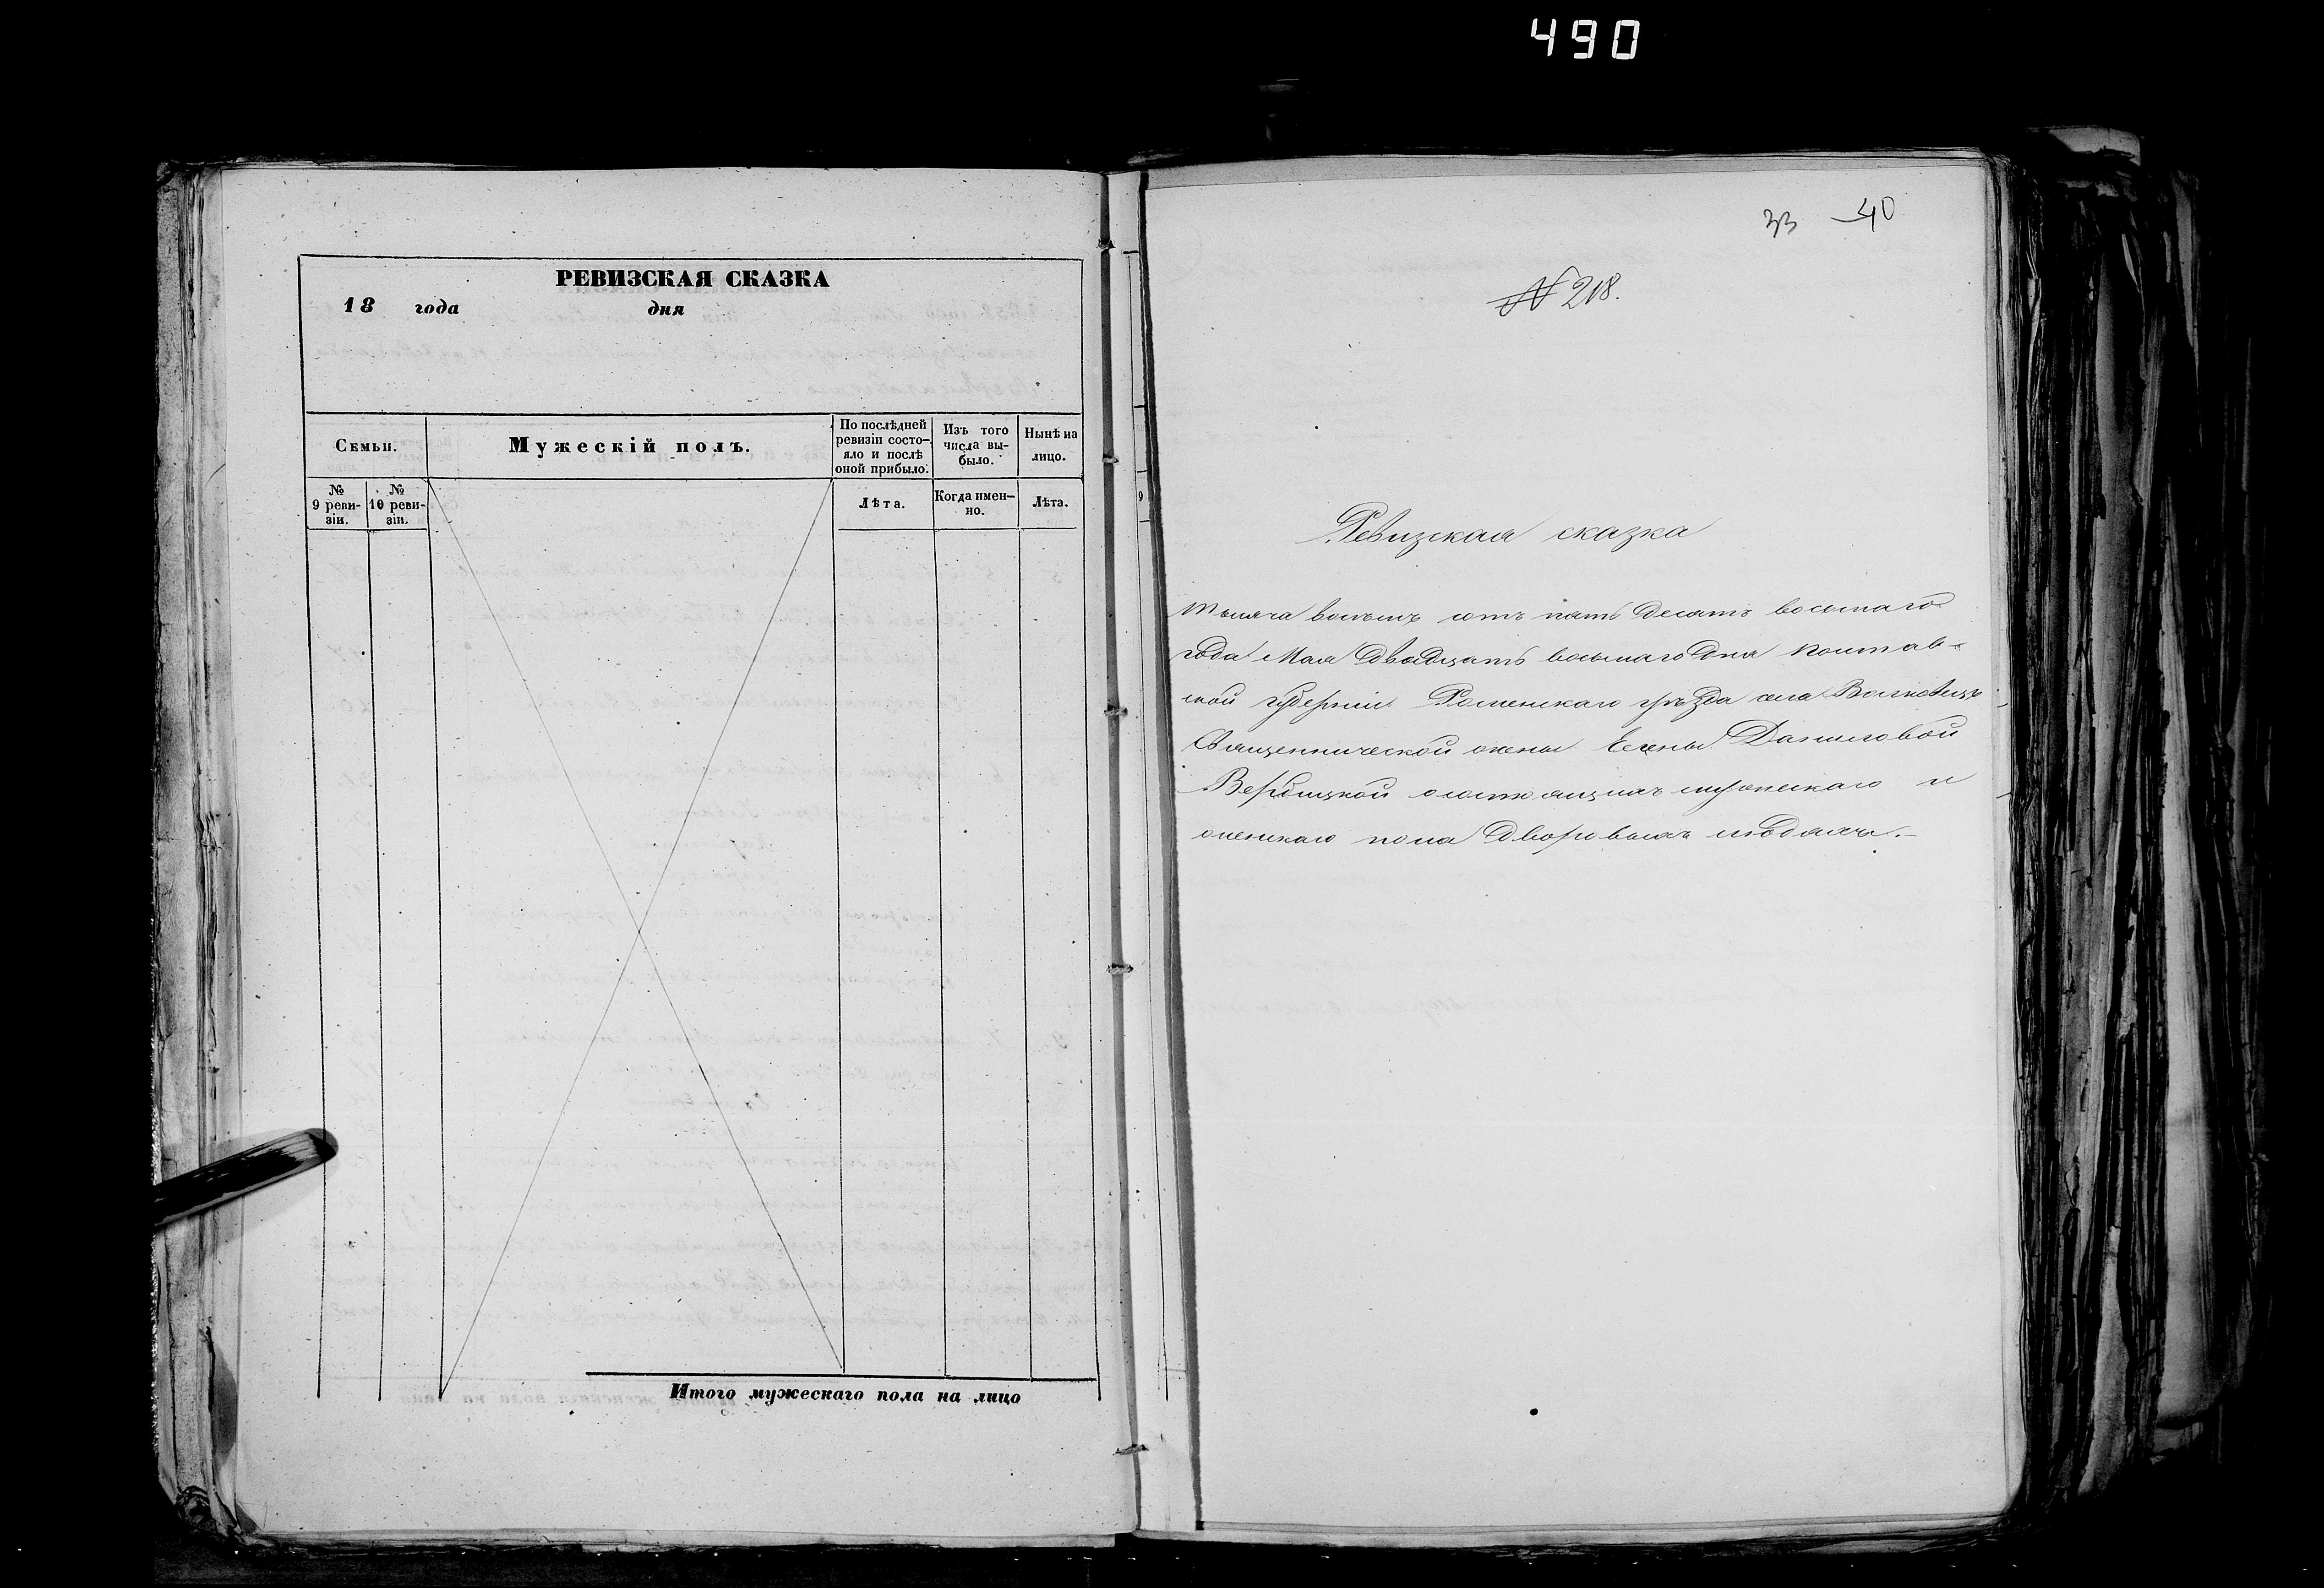 490
РЕВИЗСКАЯ СКАЗКА
18 года дня
Семьи.
Мужескій полъ.
По послѣдней ревизіи состо-
яло и послѣ
оной прибыло.
Изъ того
числа вы-
было.
Нынѣ на
лицо.
№
9 реви-
зіи.
№
10 реви-
зіи.
Лѣта.
Когда имен-
но.
Лѣта.
Итого мужескаго пола на лицо
33 40
№ 218.
Ревизская сказка
тысяча восемь сотъ пять десятъ восьмаго
года Мая двадцать восьмаго дня Полтав-
ской губерніи Роменскаго уѣзда села Волковецъ
Священнической жены Елены Даниловой
Вербицкой о состоящихъ мужескаго и
женскаго пола дворовыхъ людяхъ.